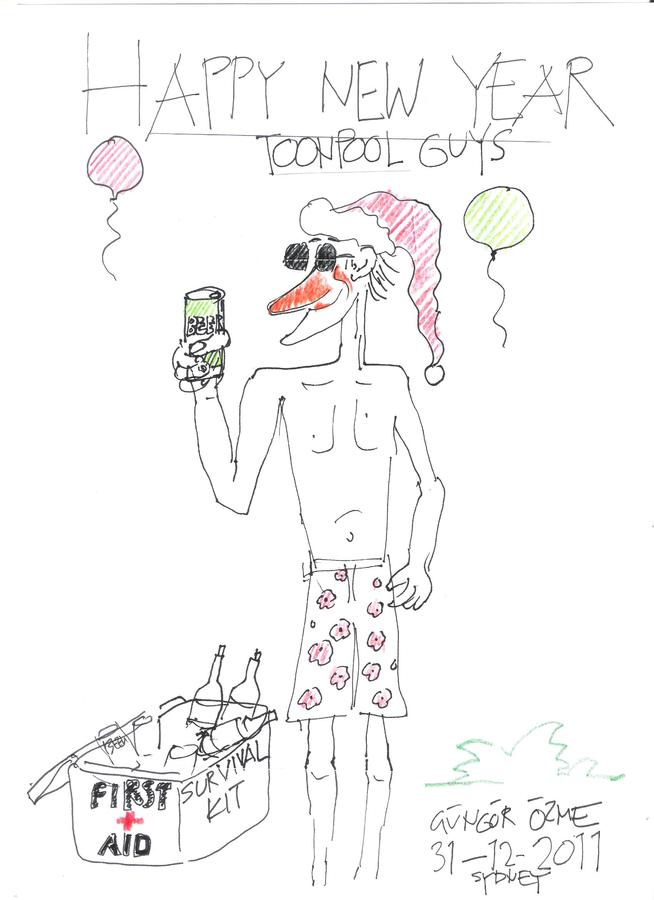 HAPPY NEW YEAR
TOONPOOL GUYS
BEER
BEER
FIRST
AID
SURVIVAL
KIT
GÜNGÖR ÖZME
31-12-2011
SYDNEY